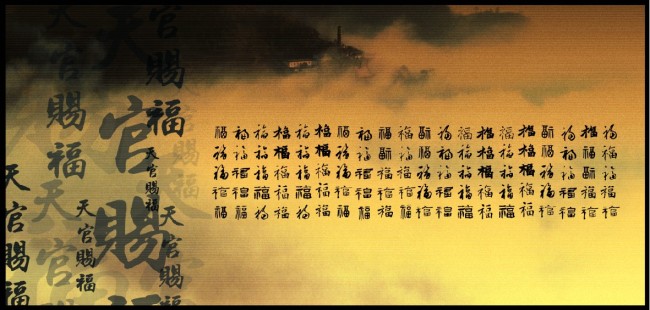 天官賜福
天官賜
官賜福
天官賜福
天官賜福
天官賜福
天官賜福
天官
賜福
福福福福福福福福福福福福福福福福福福福福
福福福福福福福福福福福福福福福福福福福福
福福福福福福福福福福福福福福福福福福福福
福福福福福福福福福福福福福福福福福福福福